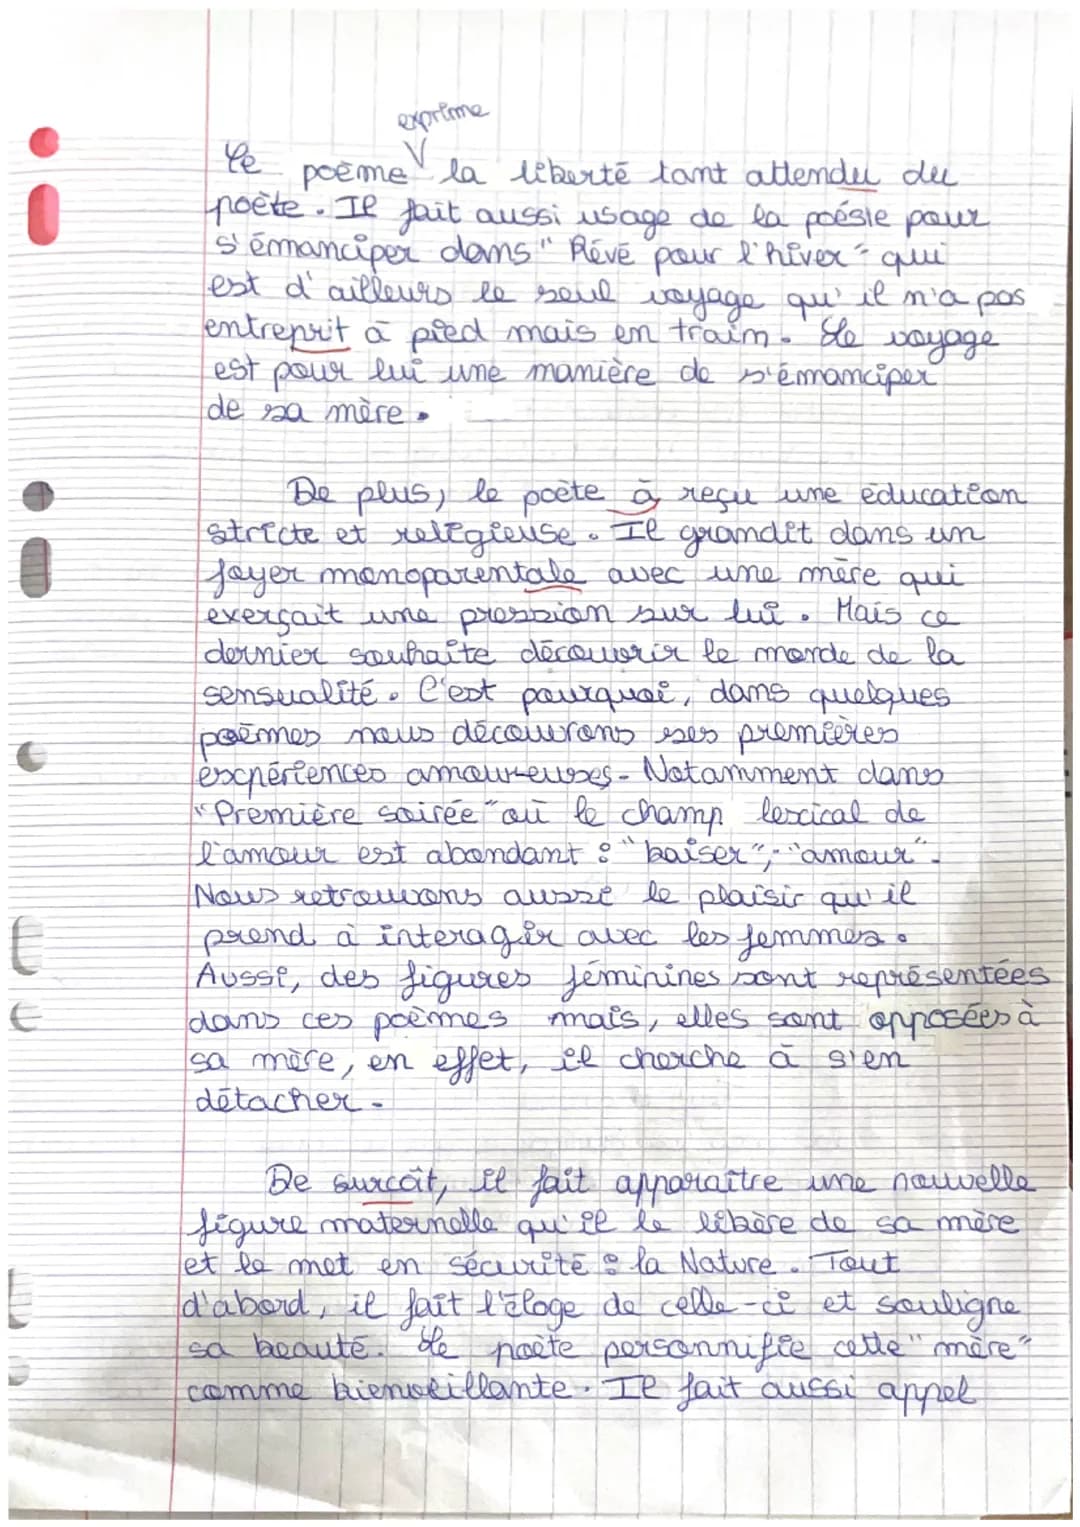 exprime
Le poème la liberté tant attendu du
poète. Il fait aussi usage de la poésie pour
s'émanciper dans "Rêvé pour l'hiver" qui
est d'ailleurs le seul voyage qu'il n'a pas
entreprit à pied mais en train. Le voyage
est pour lui une manière de s'émanciper
de sa mère.
De plus, le poète à reçu une éducation
stricte et religieuse. Il grandit dans un
foyer monoparentale avec une mère qui
exerçait une pression sur lui. Mais ce
dernier souhaite découvrir le monde de la
sensualité. C'est pourquoi, dans quelques
poèmes nous découvrons ses premières
expériences amoureuses. Notamment dans
"Première soirée" où le champ lexical de
l'amour est abondant : "baiser", "amour".
Nous retrouvons aussi le plaisir qu'il
prend à interagir avec les femmes.
Aussi, des figures féminines sont représentées
dans ces poèmes mais, elles sont opposées à
sa mère, en effet, il cherche à s'en
détacher.
De surcoît, il fait apparaître une nouvelle
figure maternelle qu'il le libère de sa mère
et le met en sécurité : la Nature. Tout
d'abord, il fait l'éloge de celle-ci et souligne
sa beauté. Le poète personnifie cette "mère"
comme bienveillante. Il fait aussi appel